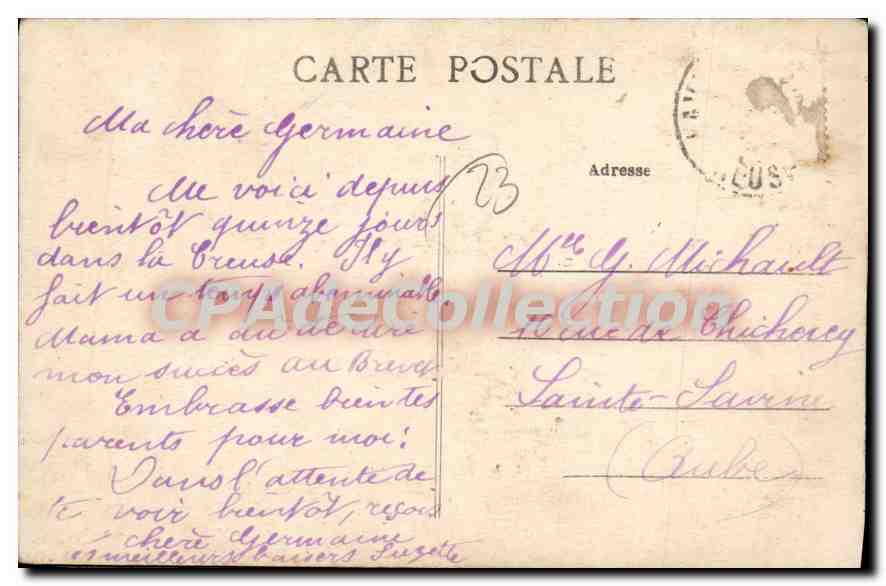 CARTE POSTALE
Ma chère Germaine
Me voici depuis
bientôt quinze jours
dans la Creuse. Il y
fait un temps abominable
Mama a dû te dire
mon succès au Brevet
Embrasse bien tes
parents pour moi.
Dans l'attente de
te voir bientôt, reçois
chère Germaine
meilleurs baisers Suzette
23
Adresse
Mlle G. Michault
rue de Thicherey
Sainte-Savine
(Aube)
CPAdeCollection